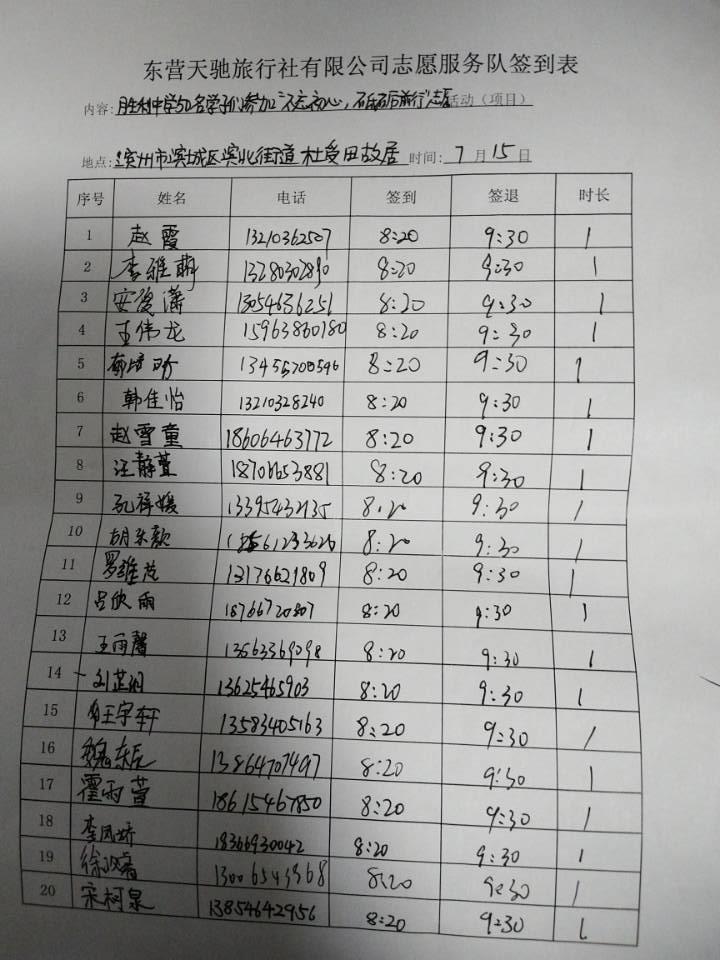 东营天驰旅行社有限公司志愿服务队签到表
内容：胜利中学52名学子们参加"不忘初心，砥砺前行"志愿活动（项目）
地点：滨州市滨城区滨北街道杜受田故居 时间：7月15日
序号 姓名 电话 签到 签退 时长
1 赵霞 13210362507 8:20 9:30 1
2 李雅萌 13280302890 8:20 9:30 1
3 安俊潇 13054636251 8:20 9:30 1
4 王伟龙 15963860180 8:20 9:30 1
5 13455700546 8:20 9:30 1
6 韩佳怡 13210328240 8:20 9:30 1
7 赵雪童 18606463772 8:20 9:30 1
8 汪静萱 8:20 9:30 1
9 孔祥媛 13395432135 8:20 9:30 1
10 胡乐歆 8:20 9:30 1
11 罗维茂 13176621809 8:20 9:30 1
12 吕欣雨 18766720807 8:20 9:30 1
13 王雨馨 13563369098 8:20 9:30 1
14 刘芷润 13625465903 8:20 9:30 1
15 王宇轩 13583405163 8:20 9:30 1
16 魏东辰 13864707497 8:20 9:30 1
17 霍雨萱 18615467850 8:20 9:30 1
18 李凤娇 18366930042 8:20 9:30 1
19 13006543368 8:20 9:30 1
20 宋柯泉 13854642956 8:20 9:30 1